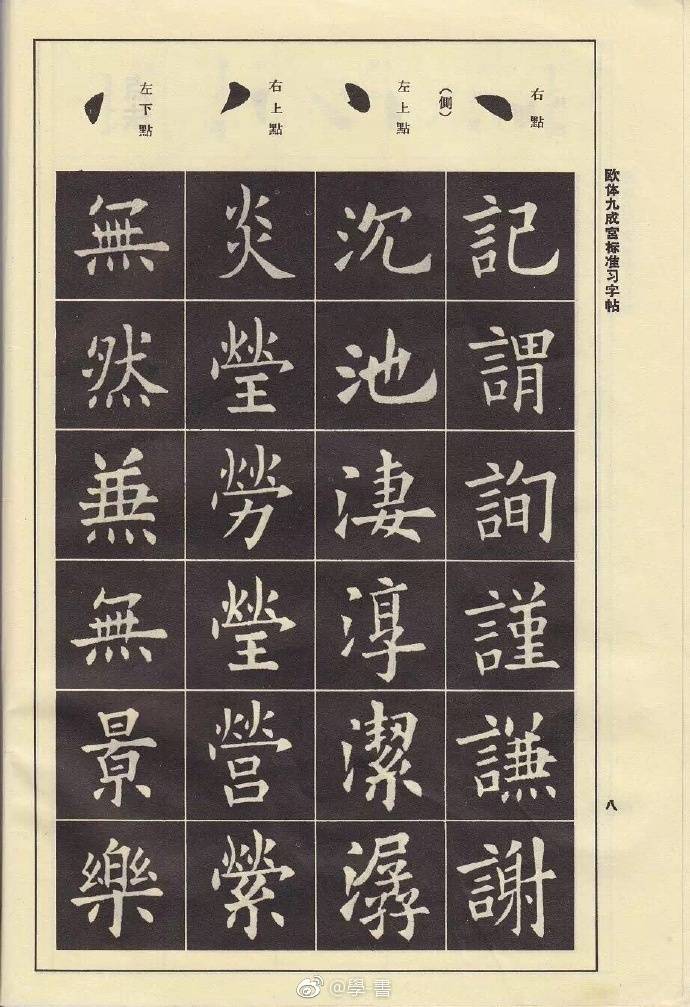 欧体九成宫标准习字帖
八
右點
(側)
左上點
右上點
左下點
記謂詢謹謙謝
沉池淒淳潔潺
炎瑩勞瑩營縈
無然兼無景樂
@學書